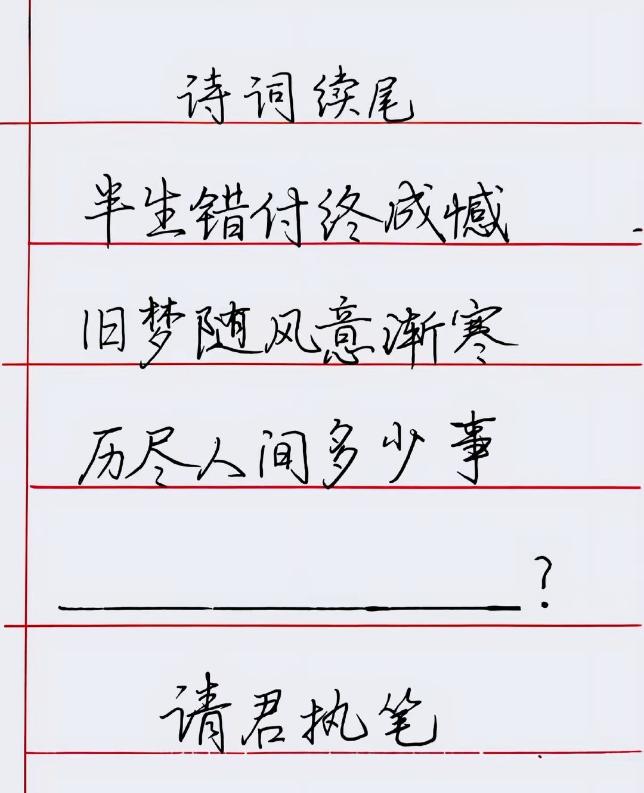 诗词续尾
半生错付终成憾
旧梦随风意渐寒
历尽人间多少事
____________________?
请君执笔